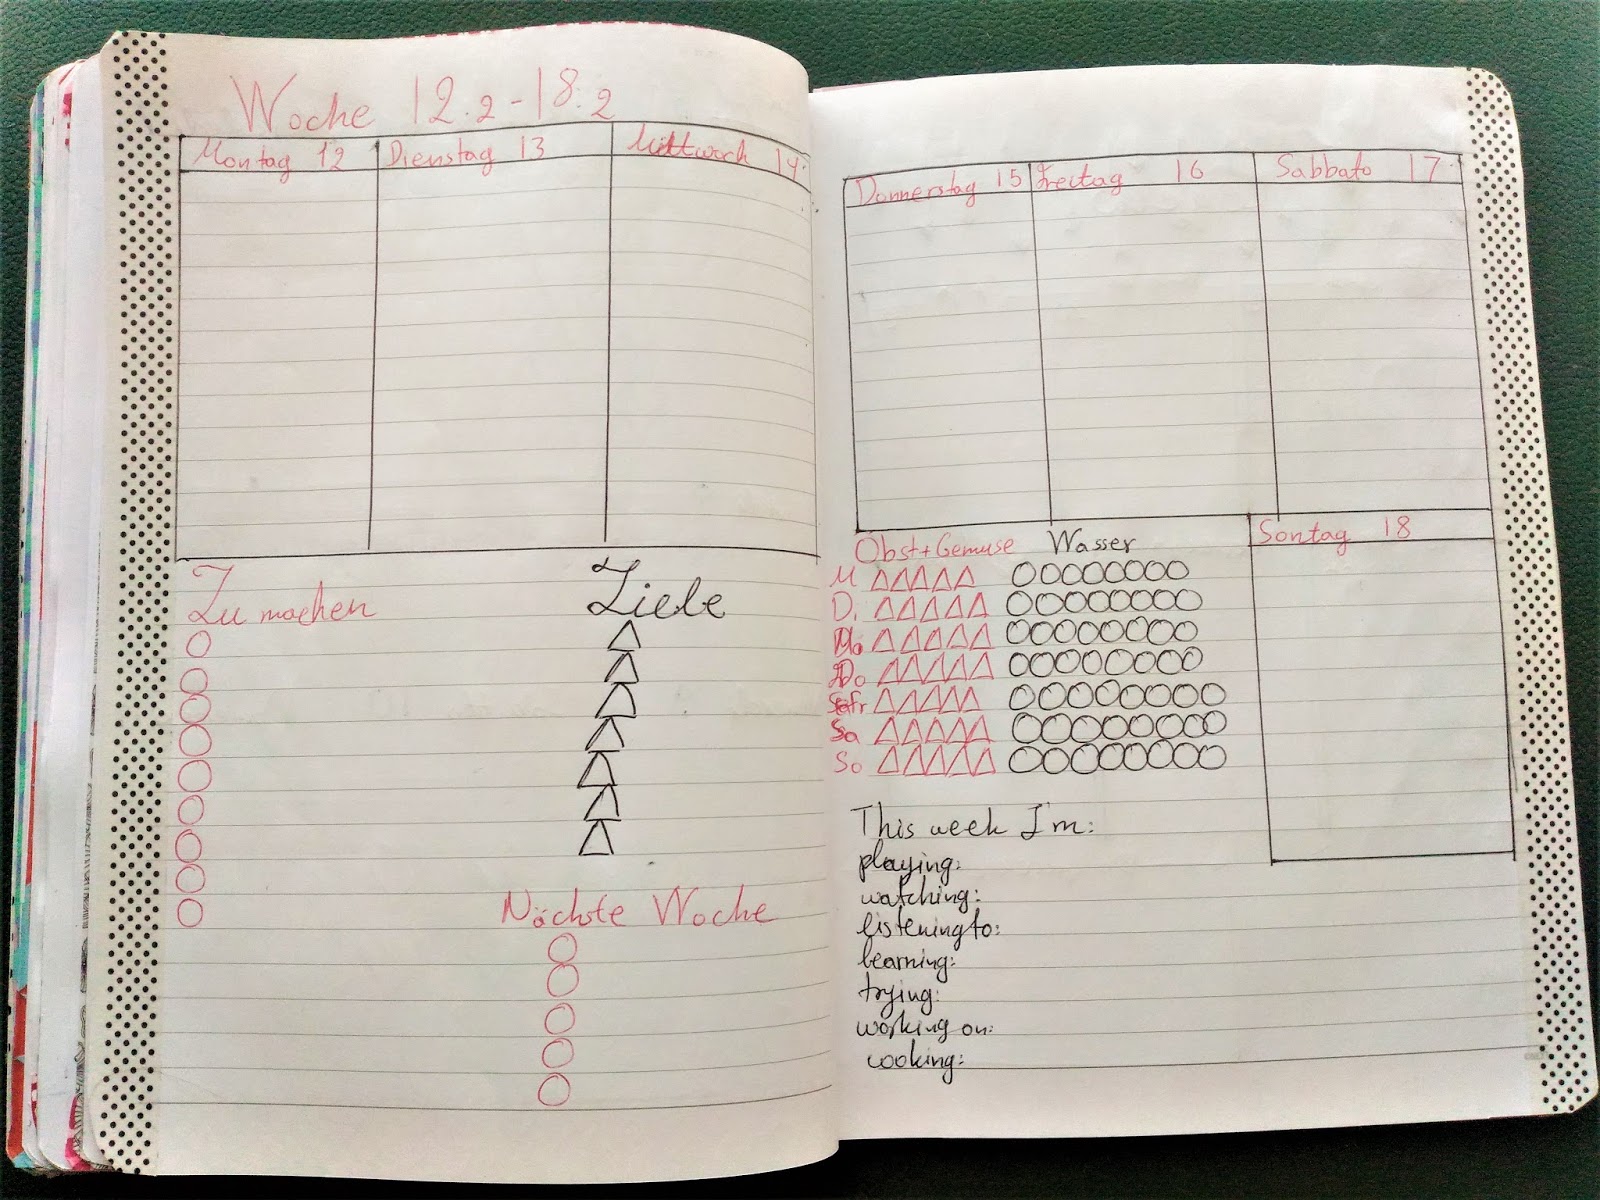 Woche 12.2-18.2
Montag 12
Dienstag 13
Mittwoch 14.
Zu machen
Ziele
Nächste Woche
Donnerstag 15
Freitag 16
Sabbato 17.
Obst+Gemuse
Wasser
M
Di
Mo
Do
fr
Sa
So
Sontag 18
This week I'm:
playing:
watching:
listening to:
learning:
trying:
working on:
cooking: